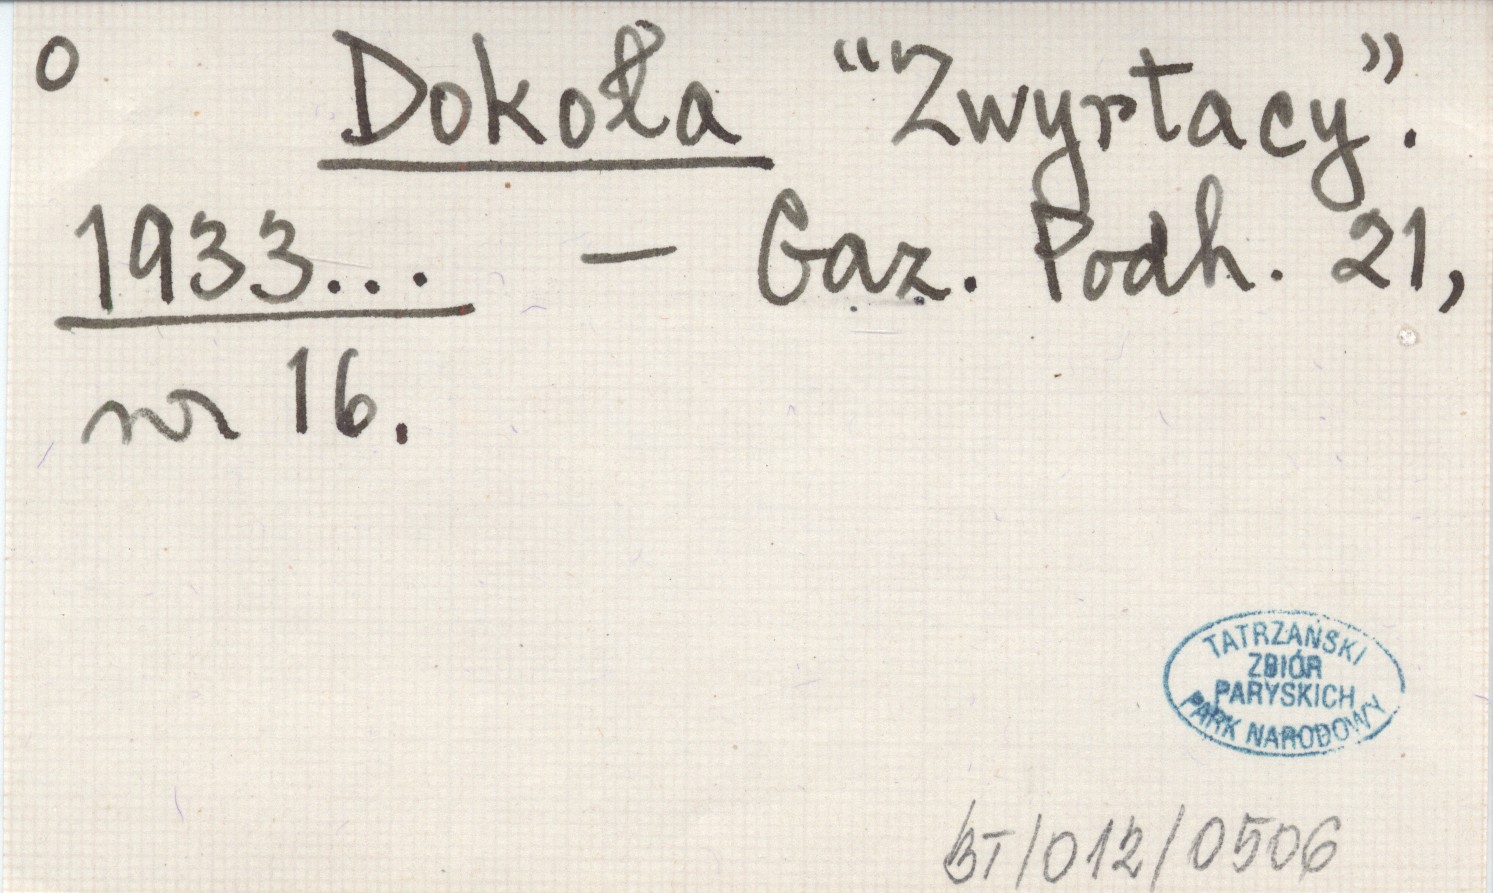 o Dokoła “Zwyrtacy”.
1933... – Gaz. Podh. 21,
nr 16.
TATRZAŃSKI
ZBIÓR
PARYSKICH
PARK NARODOWY
BT/012/0506